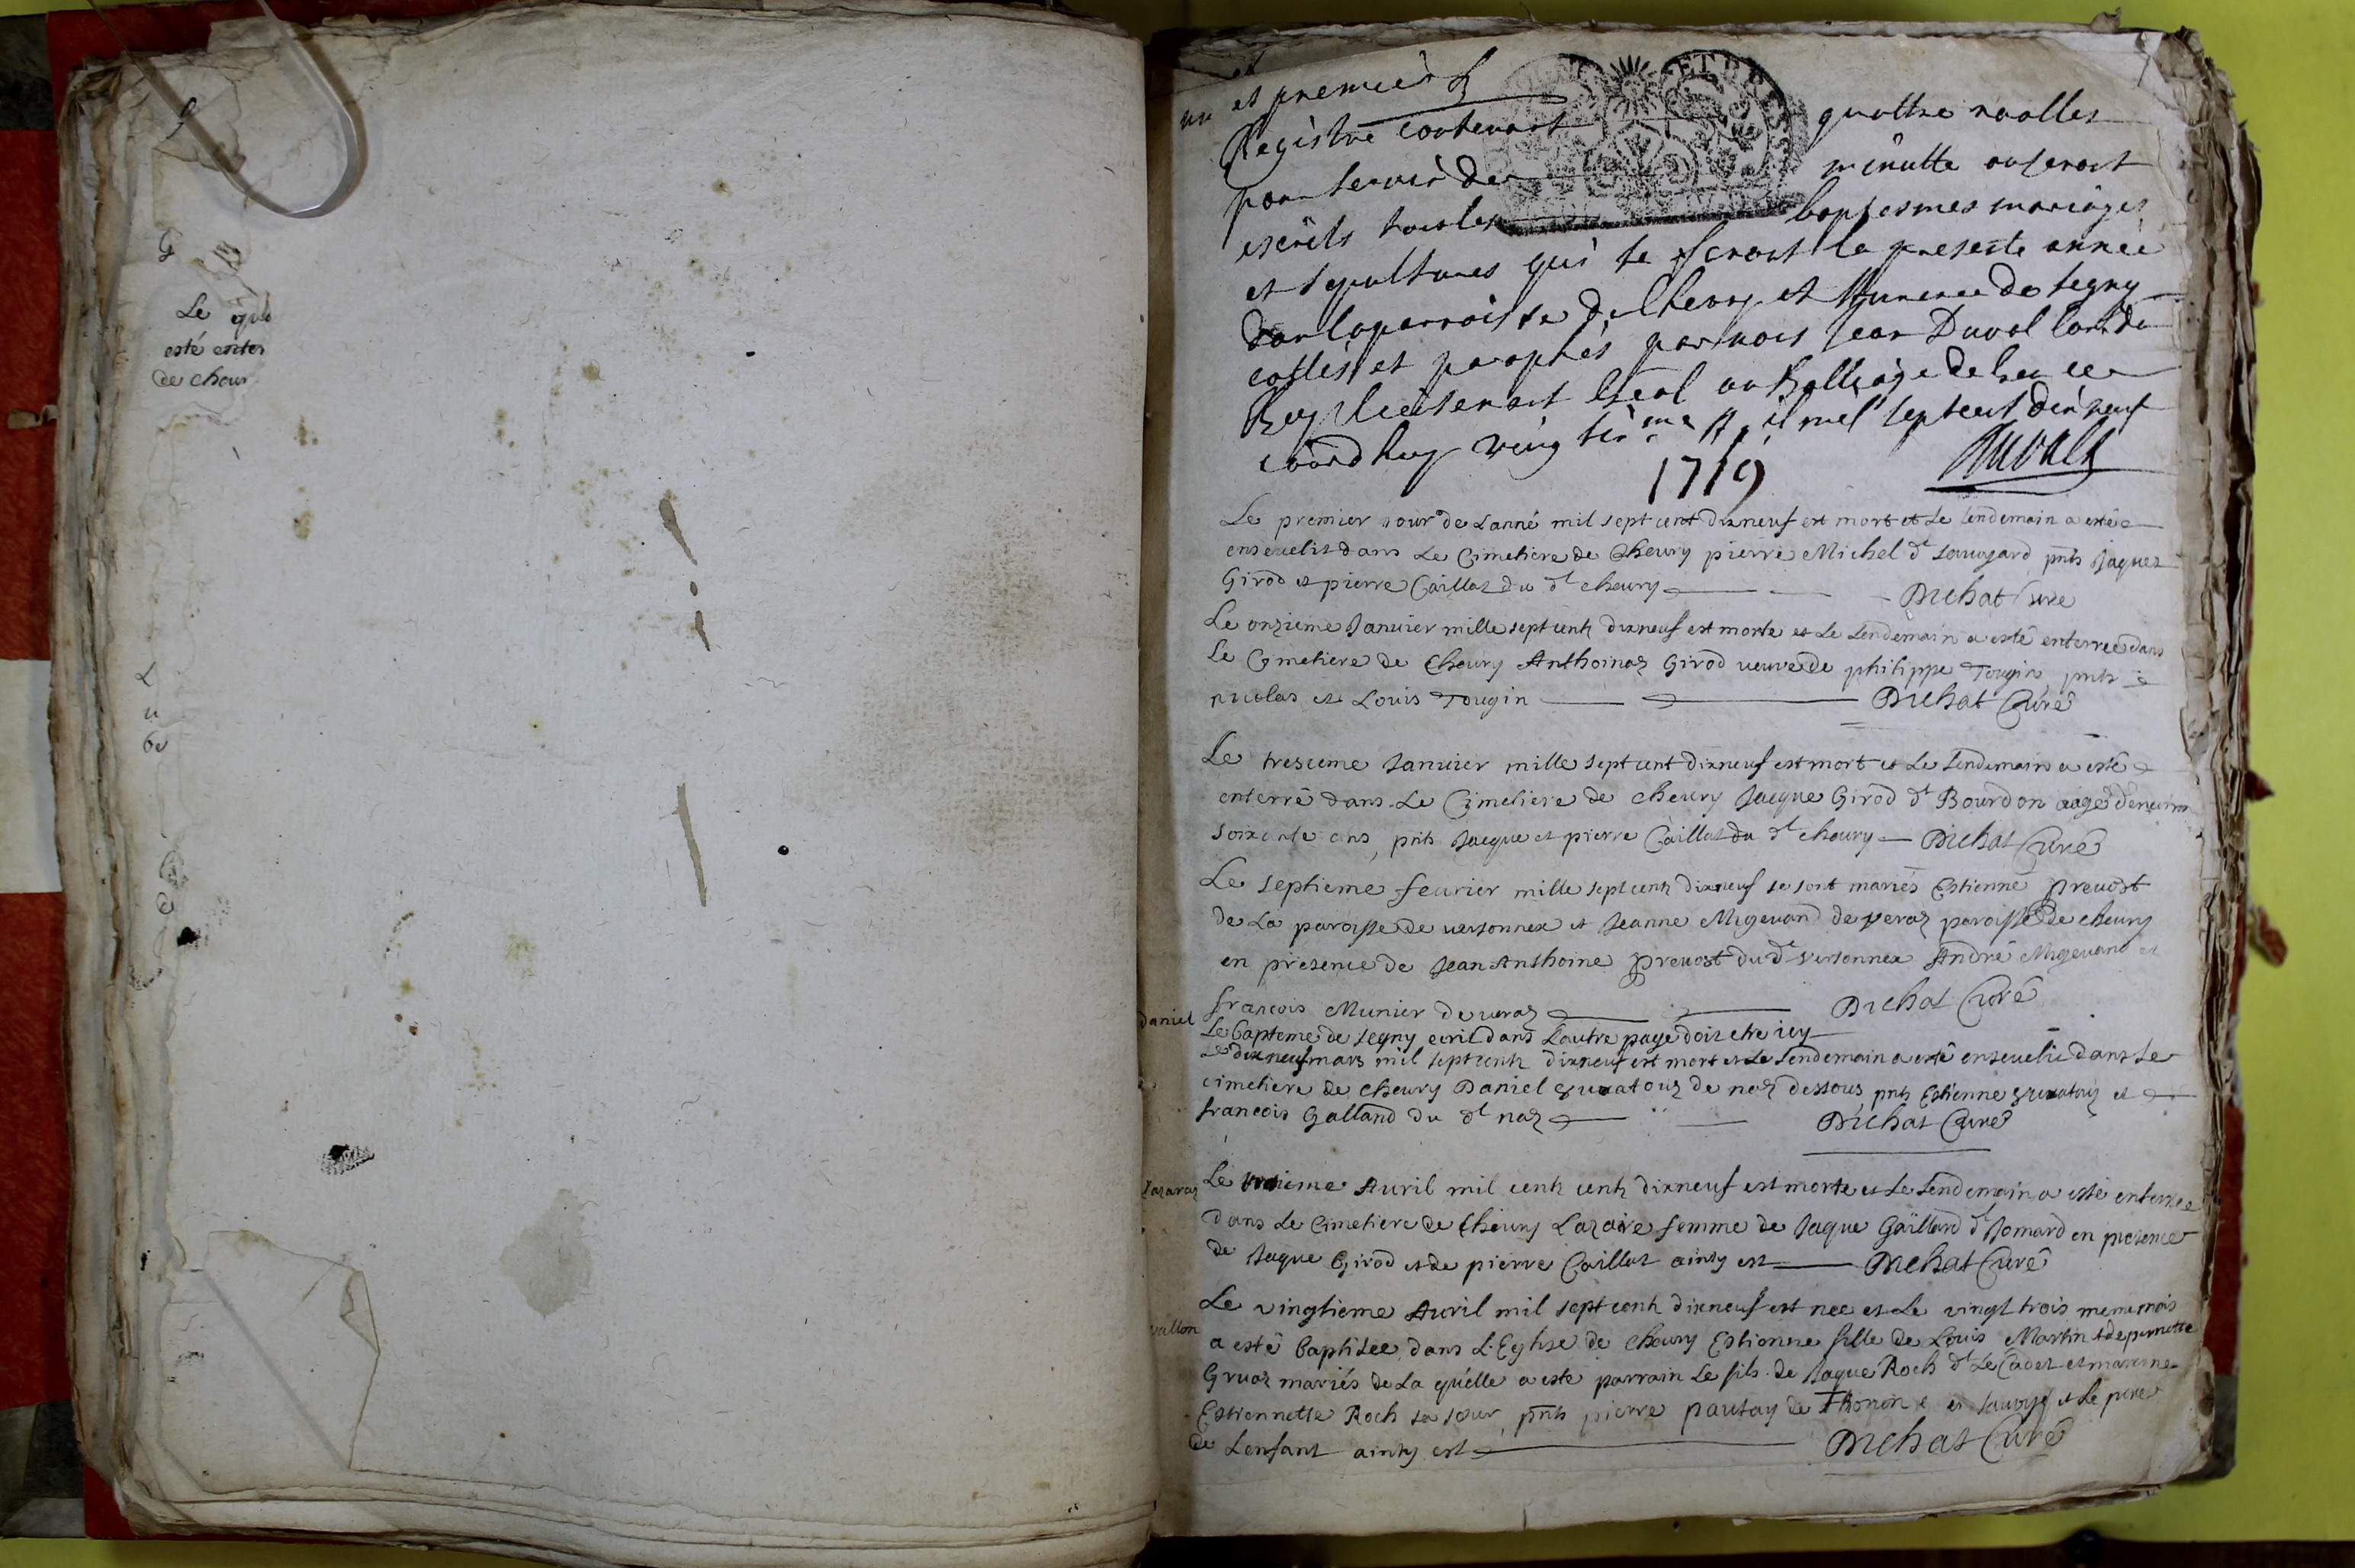 Le
esté enter
de cheur
un et premier
Registre contenant quattre roolles
pour servir de minutte ou seront
escrits tous les baptesmes mariages
et sepultures qui se feront la presente année
dans la parroisse de Cheury et de Segny
cottés et paraphés par nous Jean Duval Con.er du
Roy Lieutenant Gñal au Balliage de Gex ce
jourdhuy vingtième mil sept cent dix neuf
Duval
1719
Le premier jour de Lanné mil sept cent dixneuf est mort et Le lendemain a esté
ensevelit dans Le Cimetiere de Cheury pierre Michel dt Sauvgard pñts Jaques
Girod et pierre Caillat du dt cheury Dichat Curé
Le onzieme Januier mille sept centz dixneuf est morte et Le Lendemain a esté enterreé dans
Le Cimetiere de Cheury Anthoinaz Girod ueuve de philippe Tougin pnts
nicolas et Louis Tougin Dichat Curé
Le tresieme Januier mille sept cent dixneuf est mort et Le Lendemain a esté
enterré dans Le Cimetiere de cheury Jacque Girod dt Bourdon aagé denviron
soixante ans, pnts Jacque et pierre Caillat du dt cheury Dichat Curé
Le septieme feurier mille sept centz dixneuf se sont mariés Estienne preuost
de La paroisse de uersonnex et Jeanne Migeuand de veraz paroisse de cheury
en presence de Jean Anthoine preuost du dt Versonnex André Migeuand et
francois Munier de veraz Dichat Curé
daniel Le bapteme de segny ecrit dans Lautre page doit etre icy
Le dixneuf mars mil sept centz dixneuf est mort et Le Lendemain a esté enseuelie dans Le
cimetiere de cheury Daniel de naz dessous pnts Estienne et
francois Galland du dt naz Dichat Curé
Le Auril mil centz centz dixneuf est morte et Le Lendemain a esté enterrée
dans Le Cimetiere de Cheury Lazaire femme de Jaque Gaillard dt Jomard en presence
de Jaque Girod et de pierre Caillat ainsy est Dichat Curé
Le vingtieme Auril mil sept centz dixneuf est neé et Le vingt trois meme mois
a esté baptisee dans L'Eglise de Cheury Estienne fille de Louis Martin et de pernette
Gruaz mariés de La quelle a esté parrain Le fils de Jaque Roch dt Le Cadet et maraine
Estiennette Roch sa sœur, pnts pierre pautay de Thonon en sauoye et Le pere
de Lenfant ainsy est Dichat Curé